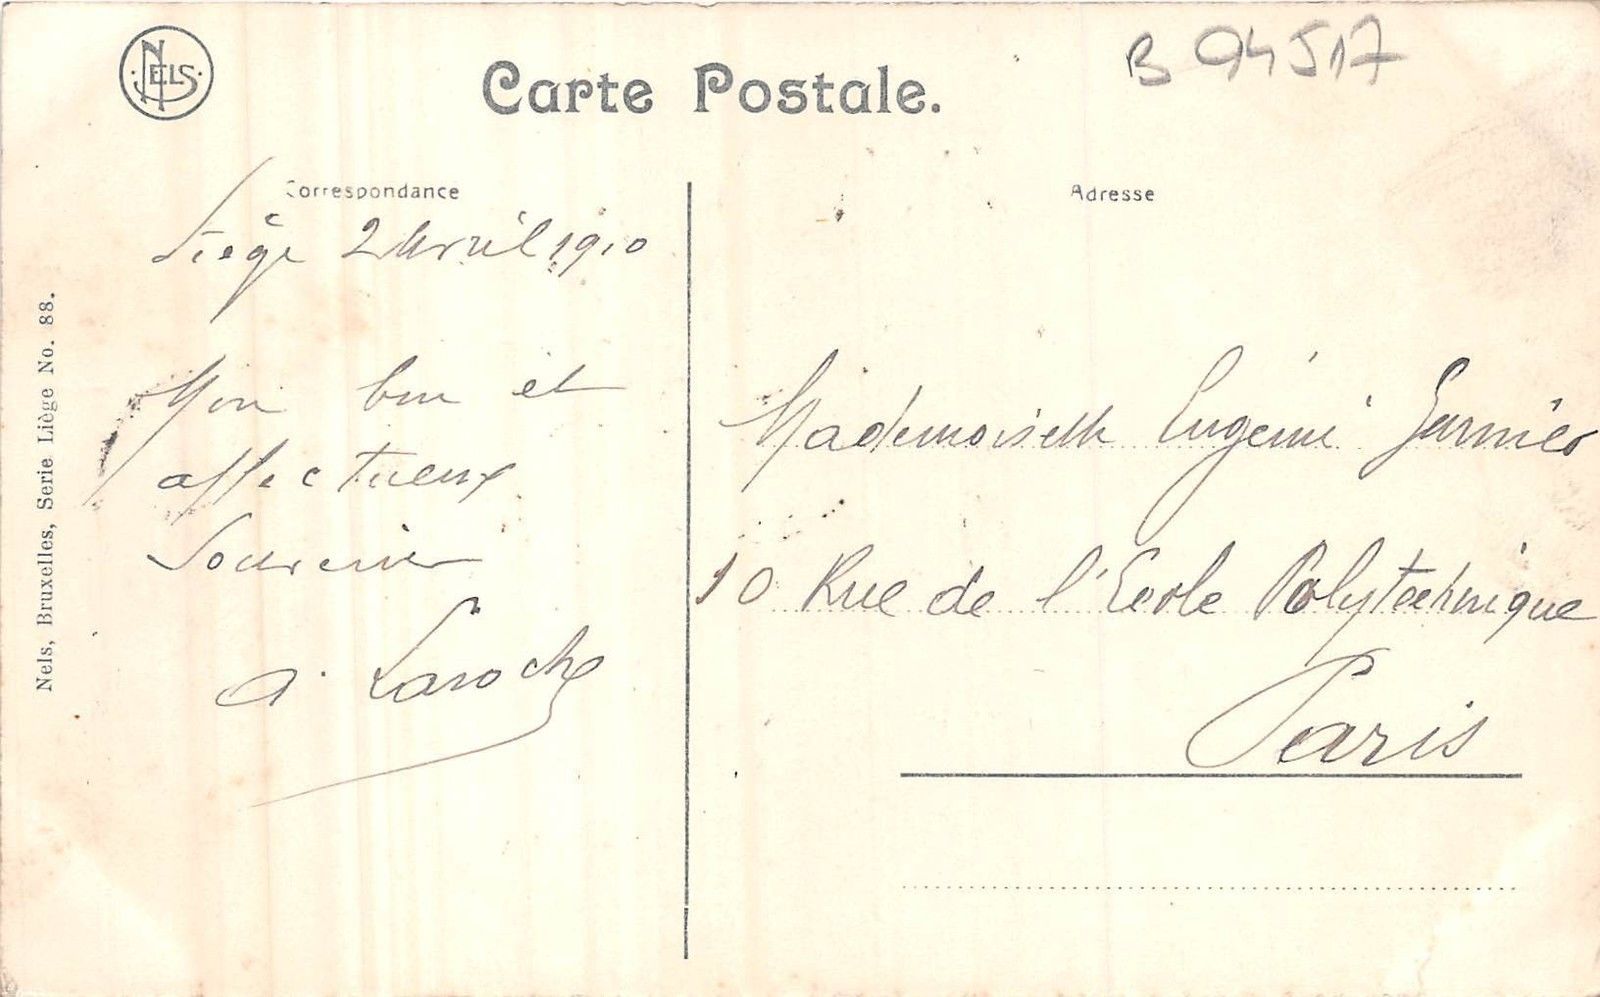 NELS
Carte Postale.
B 94517
Correspondance
Adresse
Liège 2 Avril 1910
Mon bon et
affectueux
Souvenir
A. Laroche
Mademoiselle Eugénie Garnier
10 Rue de l'Ecole Polytechnique
Paris
Nels, Bruxelles, Serie Liège No. 88.